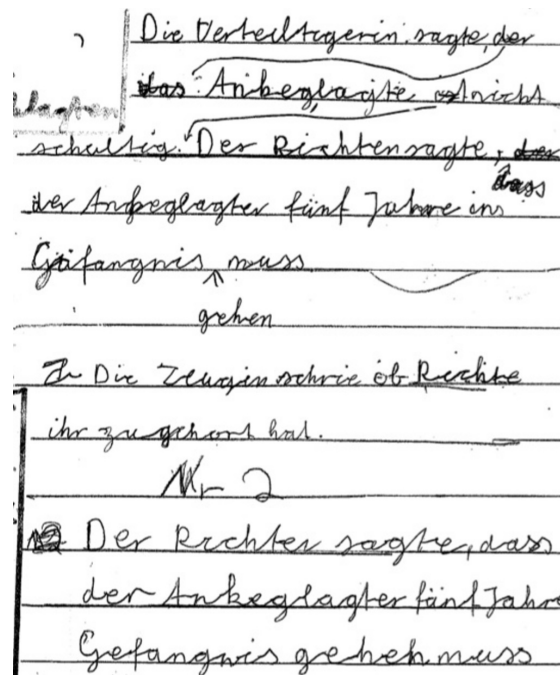 Die Verteiltigerin sagte, der
das Anbeglagte ist nicht
klagten
schultig. Der Richten sagte, der
dass
der Anbeglagter fünf Jahre ins
Gefangnis muss
gehen
Die Zeugin schrie ob Richte
ihr zugehort hat.
Nr 2
Der Richter sagte, dass
der Ankeglagter fünf Jahre
Gefangnis gehen muss